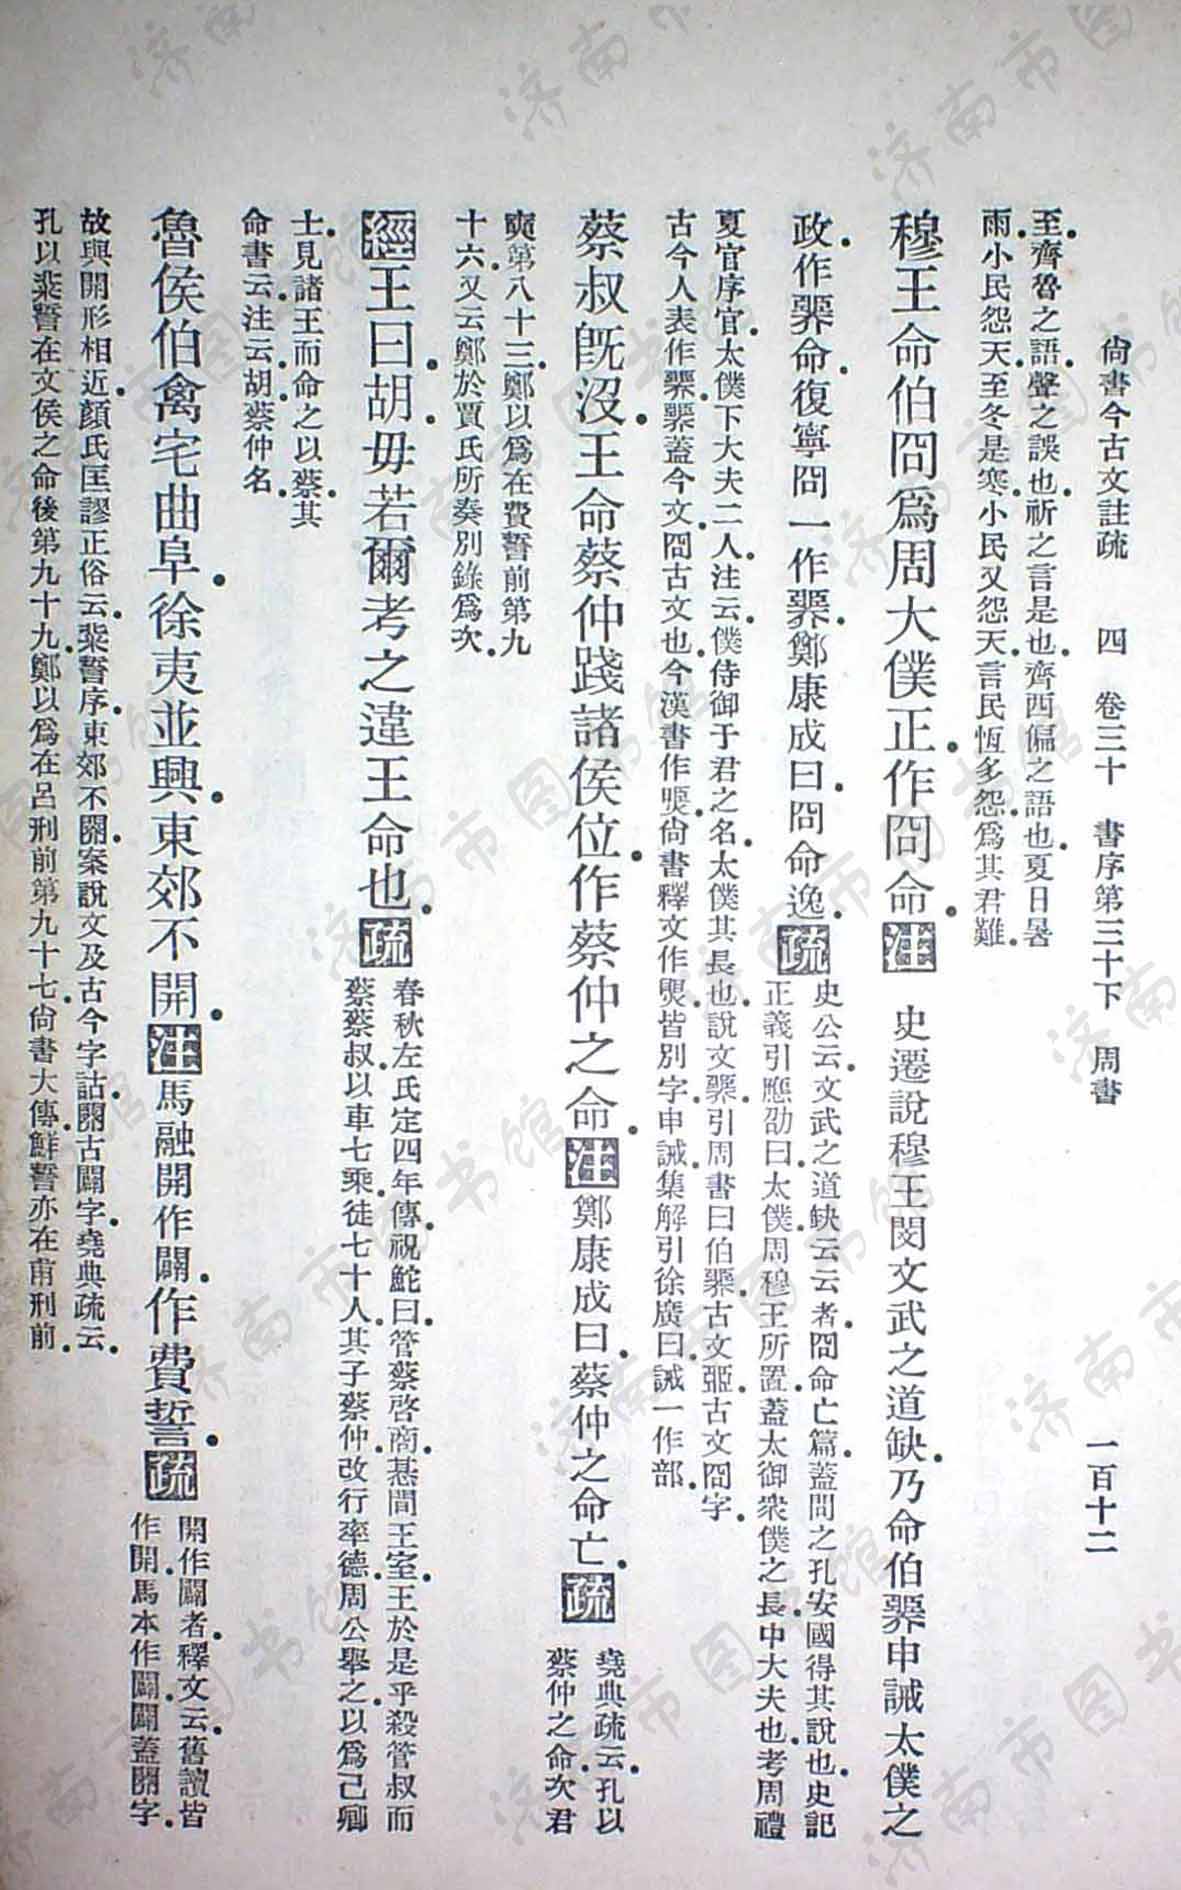 尙書今古文註疏　四　卷三十　書序第三十下　周書　一百十二
至齊魯之語聲之誤也祈之言是也齊西偏之語也夏日暑
雨小民怨天至冬是寒小民又怨天言民恆多怨爲其君難
穆王命伯冏爲周大僕正作冏命注史遷說穆王閔文武之道缺乃命伯臩申誡太僕之
政作臩命復寧冏一作臩鄭康成曰冏命逸疏史公云文武之道缺云云者冏命亡篇蓋問之孔安國得其說也史記
正義引應劭曰太僕周穆王所置蓋太御衆僕之長中大夫也考周禮
夏官序官太僕下大夫二人注云僕侍御于君之名太僕其長也說文臩引周書曰伯臩古文臦古文冏字
古今人表作臩臩蓋今文冏古文也今漢書作煚尙書釋文作煚皆別字申誡集解引徐廣曰誡一作部
蔡叔旣沒王命蔡仲踐諸侯位作蔡仲之命注鄭康成曰蔡仲之命亡疏堯典疏云孔以
蔡仲之命次君
奭第八十三鄭以爲在費誓前第九
十六又云鄭於賈氏所奏別錄爲次
經王曰胡毋若爾考之違王命也疏春秋左氏定四年傳祝鮀曰管蔡啓商惎間王室王於是乎殺管叔而
蔡蔡叔以車七乘徒七十人其子蔡仲改行率德周公舉之以爲己卿
士見諸王而命之以蔡其
命書云注云胡蔡仲名
魯侯伯禽宅曲阜徐夷並興東郊不開注馬融開作闢作費誓疏開作闢者釋文云舊讀皆
作開馬本作闢闢蓋開字
故與開形相近顏氏匡謬正俗云粊誓序東郊不闢案說文及古今字詁闢古闢字堯典疏云
孔以粊誓在文侯之命後第九十九鄭以爲在呂刑前第九十七尙書大傳鮮誓亦在甫刑前